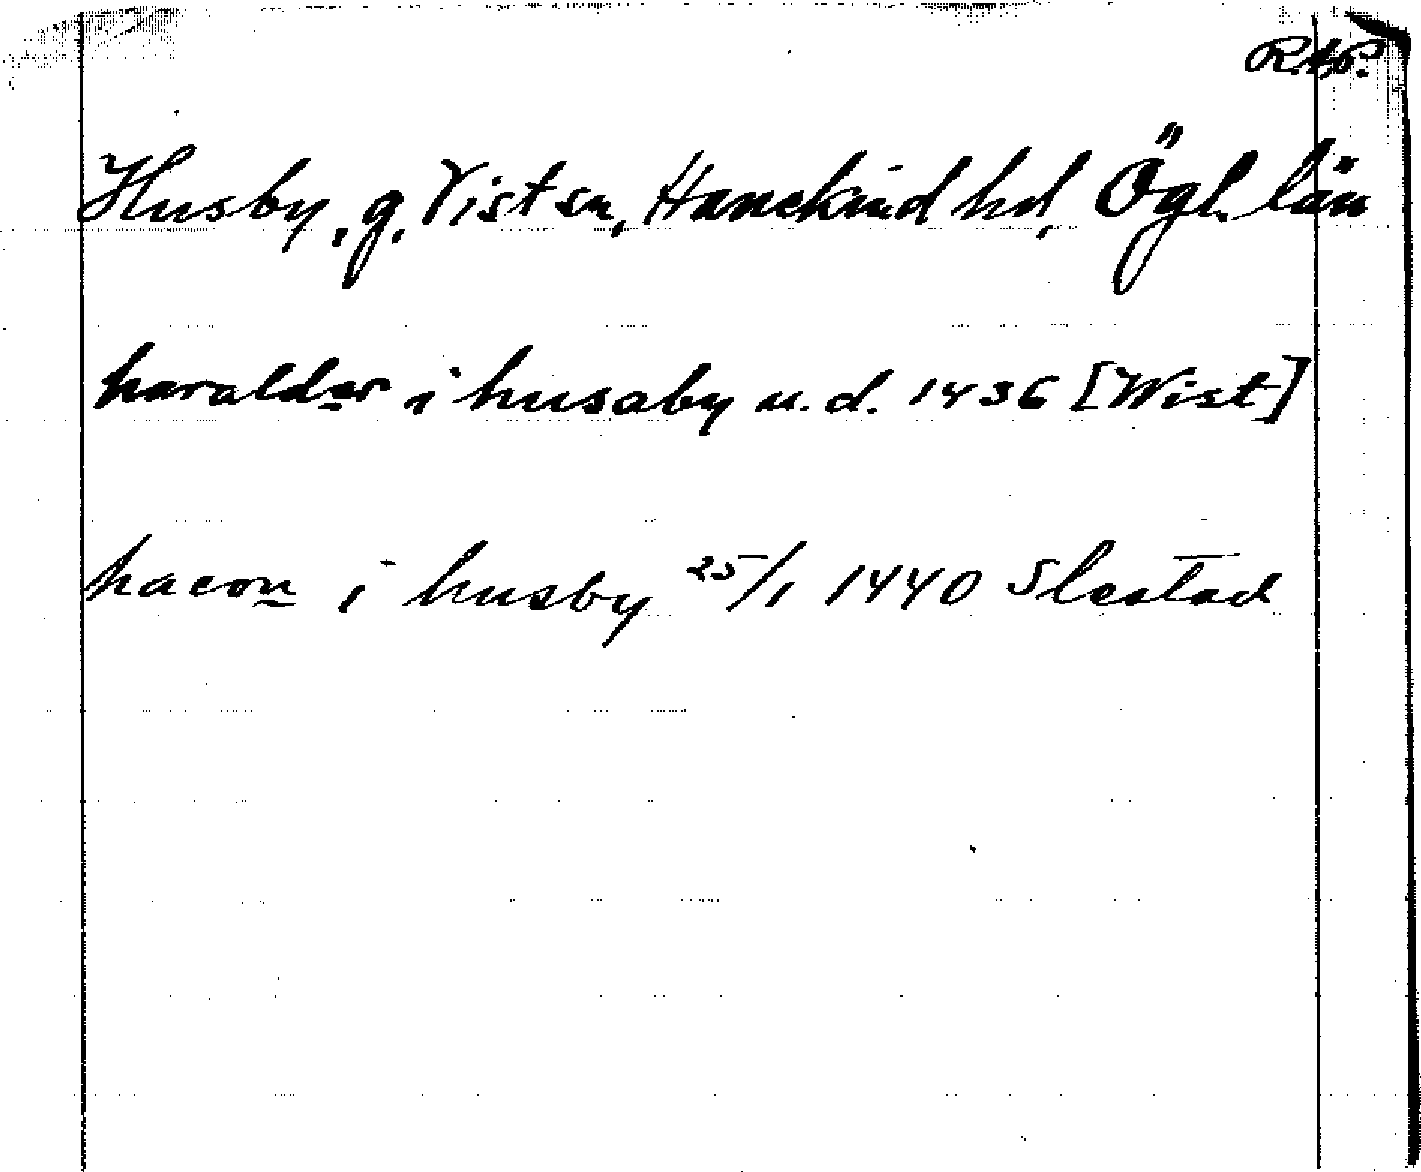 R.A.P.
Husby, g. Vist sn, Hanekind hd, Ögl. län
haralder i husaby u.d. 1436 [Wist]
hacon i husby 25/1 1440 Slestad